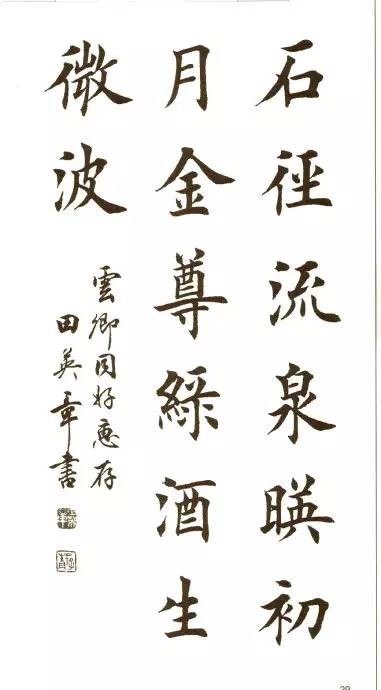 石徑流泉暎初
月金尊綠酒生
微波
雲卿同好惠存
田英章書
29